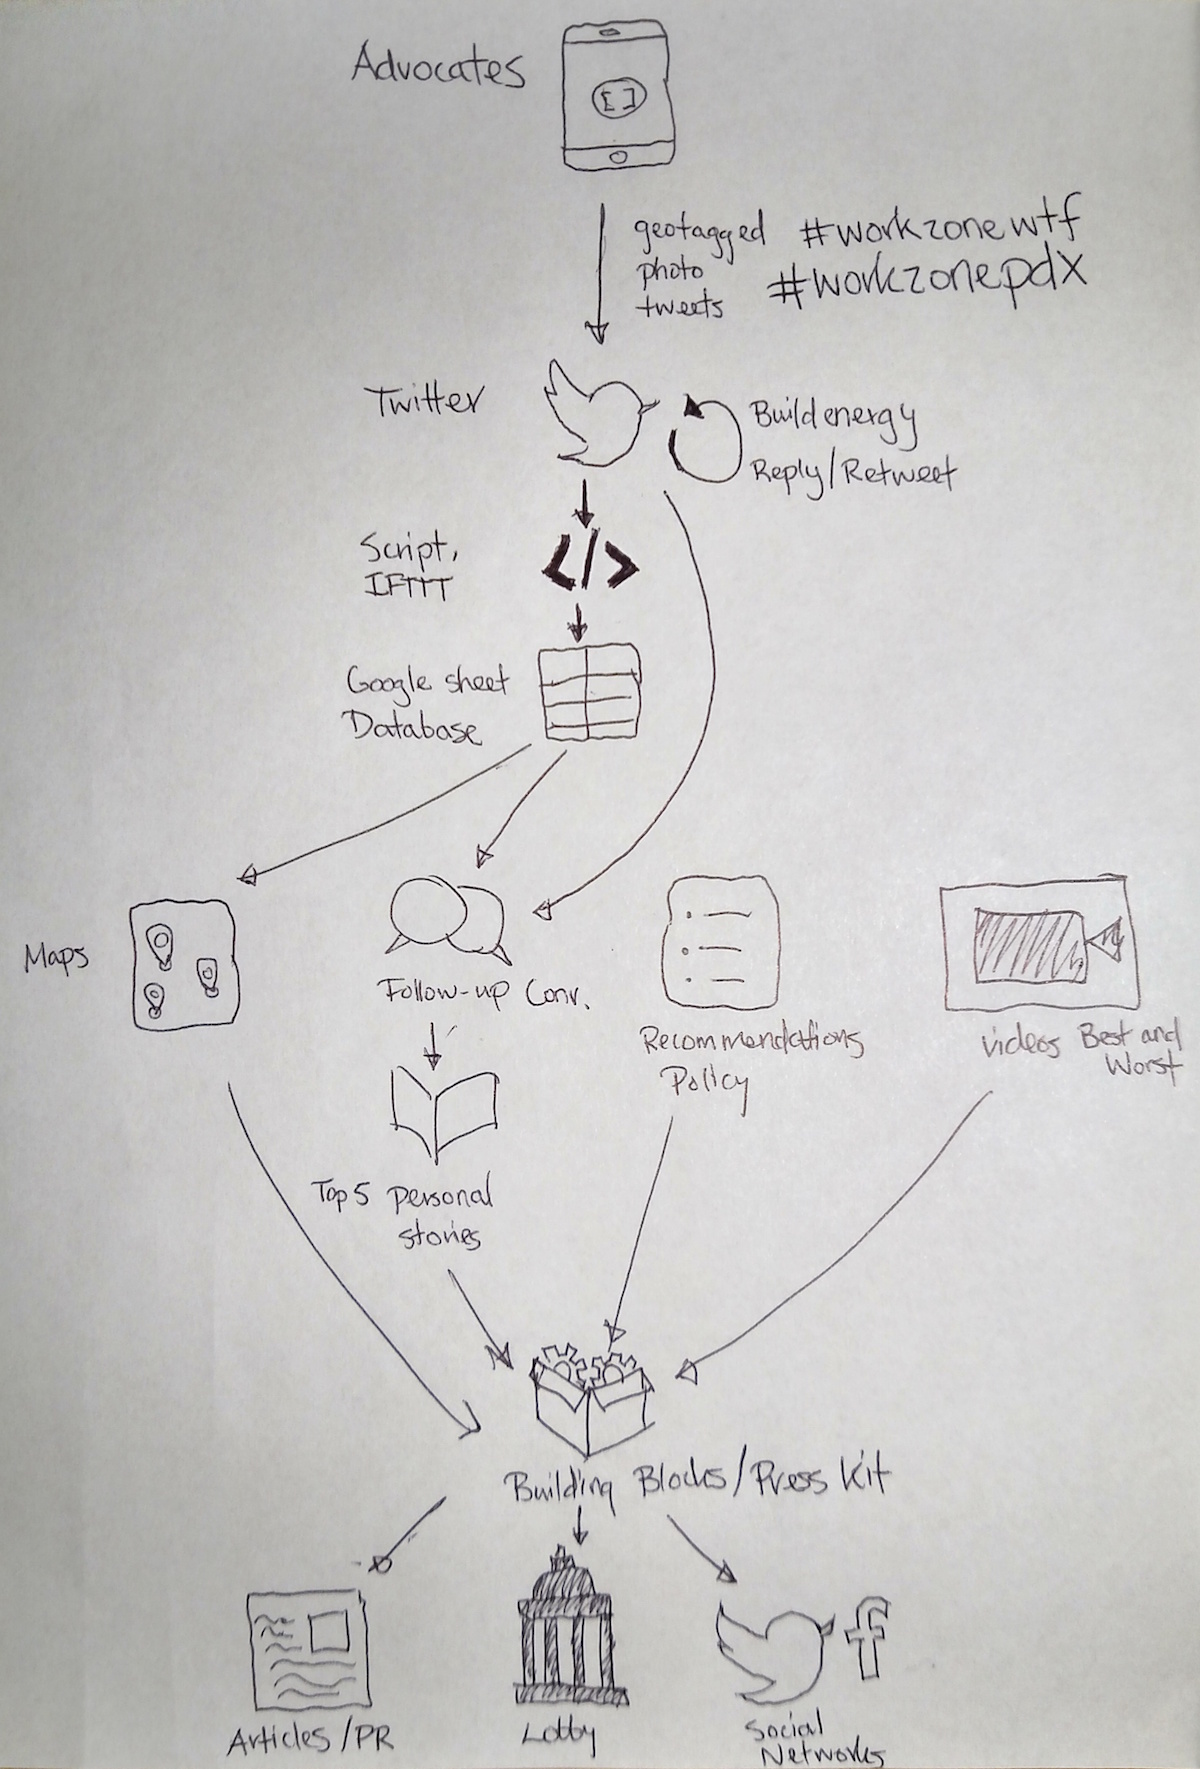 Advocates
[ ]
geotagged #workzonewtf
photo #workzonepdx
tweets
Twitter
Build energy
Reply/Retweet
Script,
IFTTT
</>
Google sheet
Database
Maps
Follow-up Conv.
Recommendations
Policy
videos Best and
Worst
Top 5 personal
stories
Building Blocks/Press Kit
f
Articles/PR
Lobby
Social
Networks